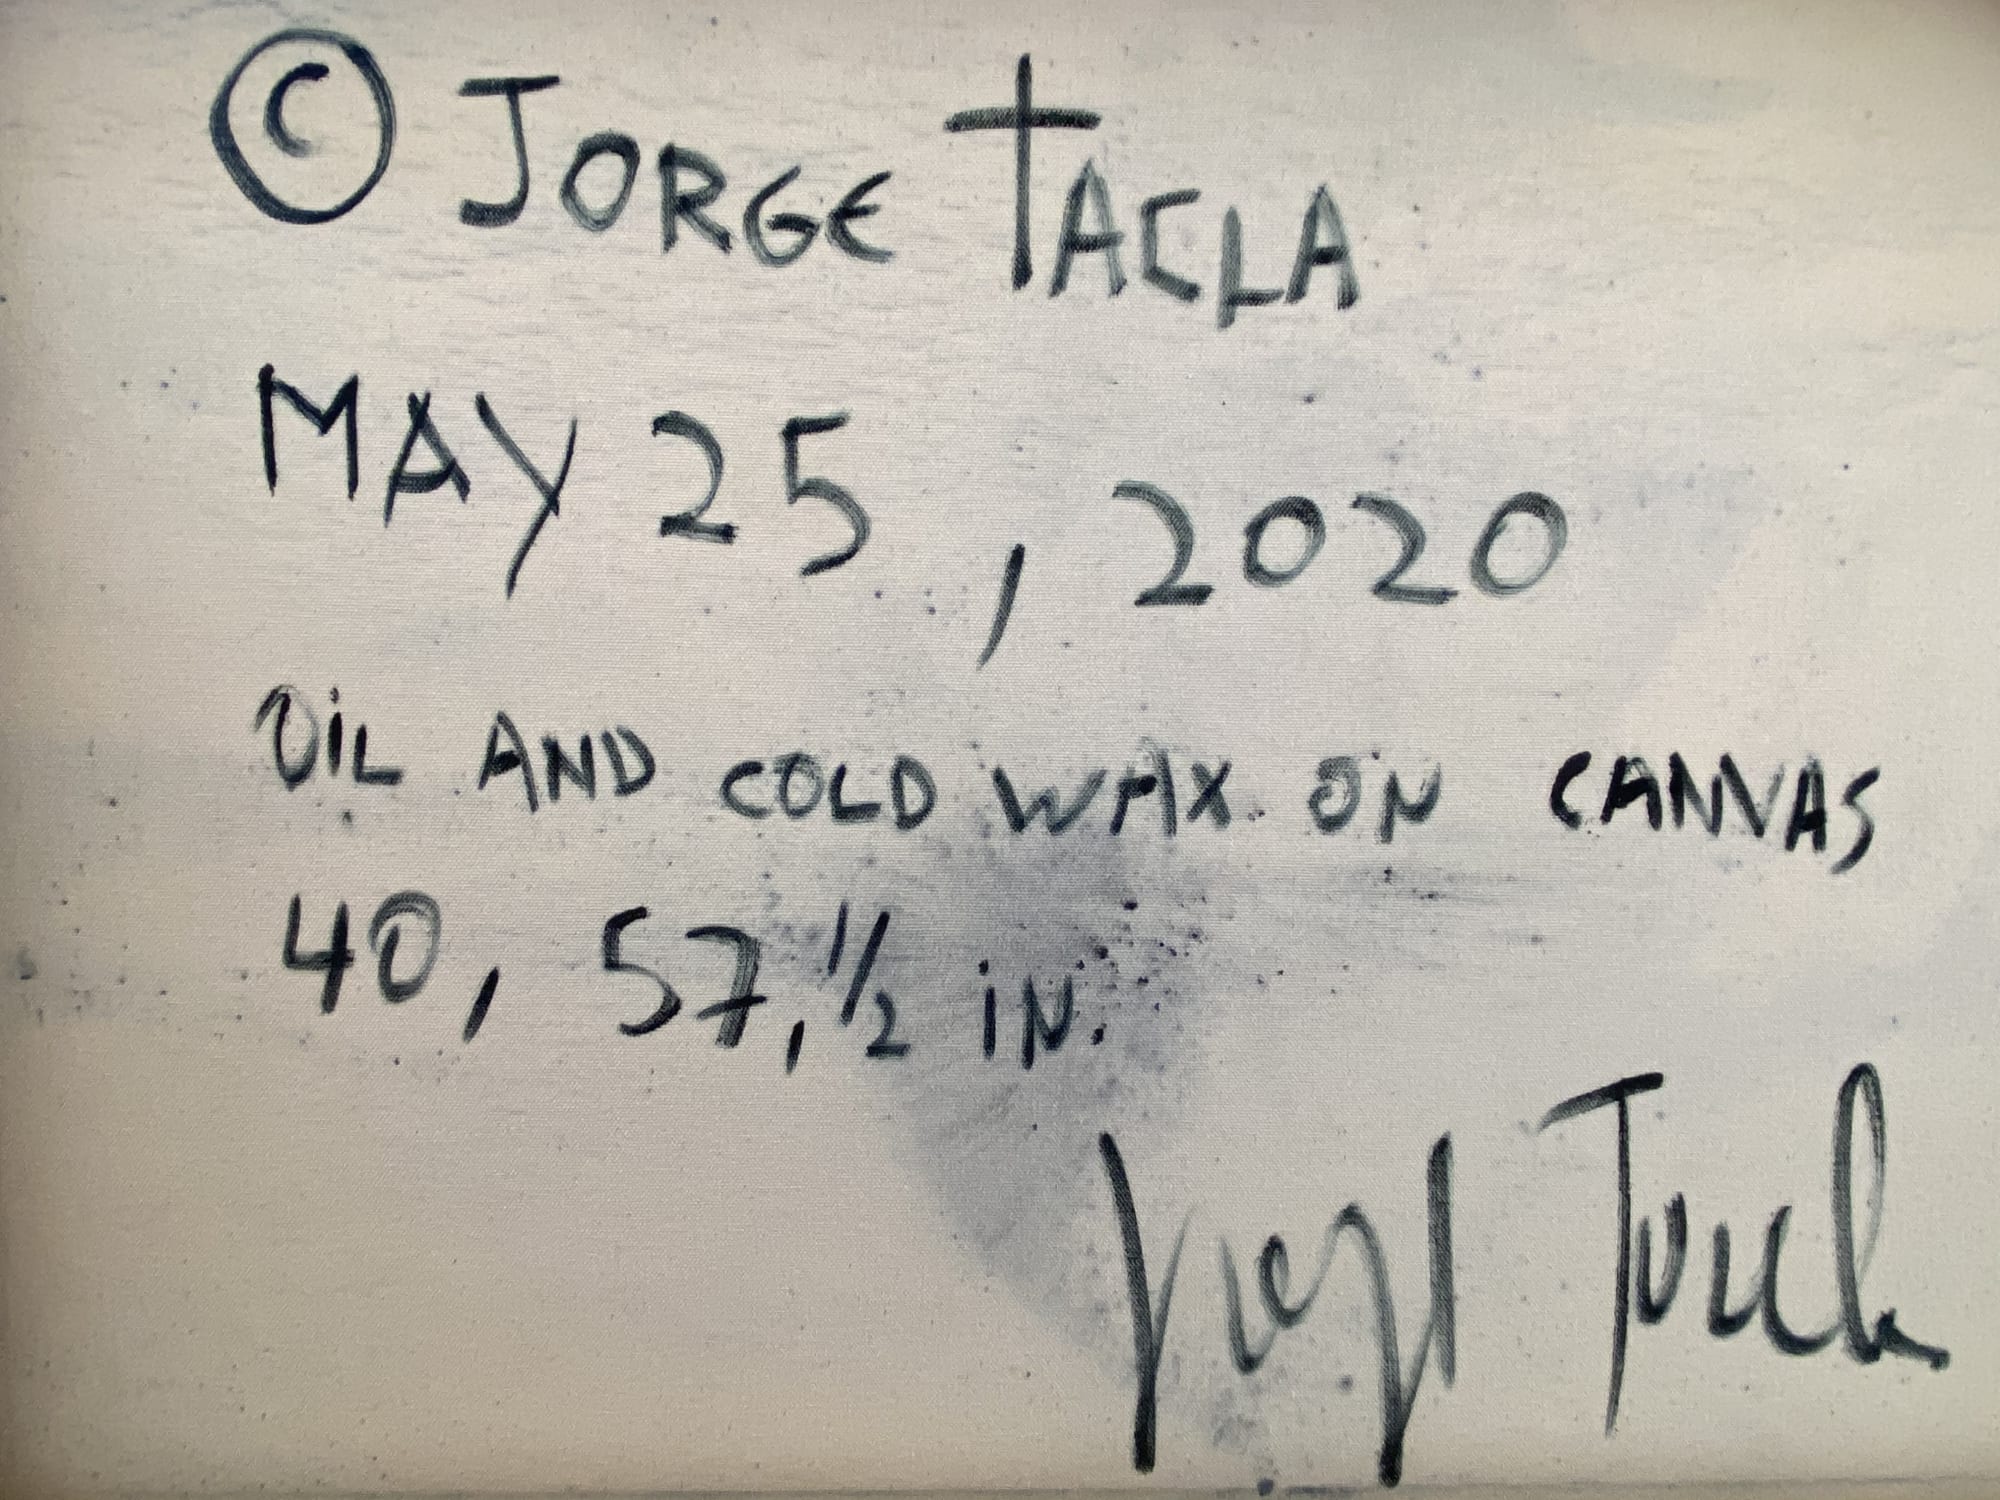 © JORGE TACLA
MAY 25, 2020
OIL AND COLD WAX ON CANVAS
40, 57, 1/2 IN.
Jorge Tacla